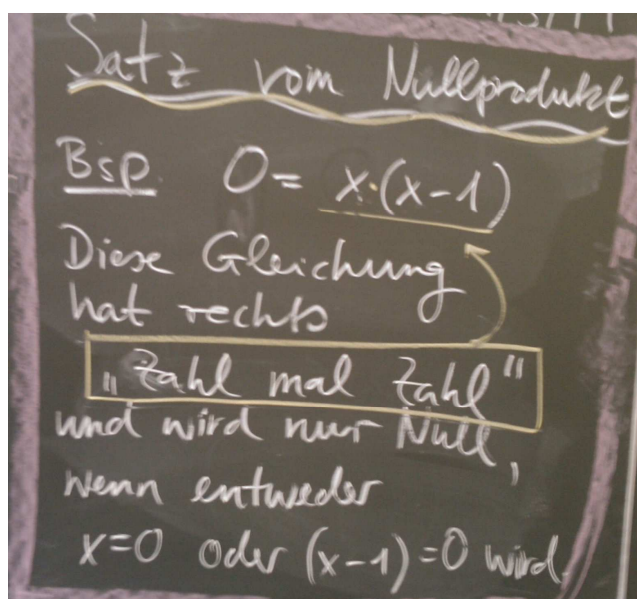 Satz vom Nullprodukt
Bsp. 0 = x·(x-1)
Diese Gleichung
hat rechts
„Zahl mal Zahl“
und wird nur Null,
wenn entweder
x=0 oder (x-1)=0 wird.